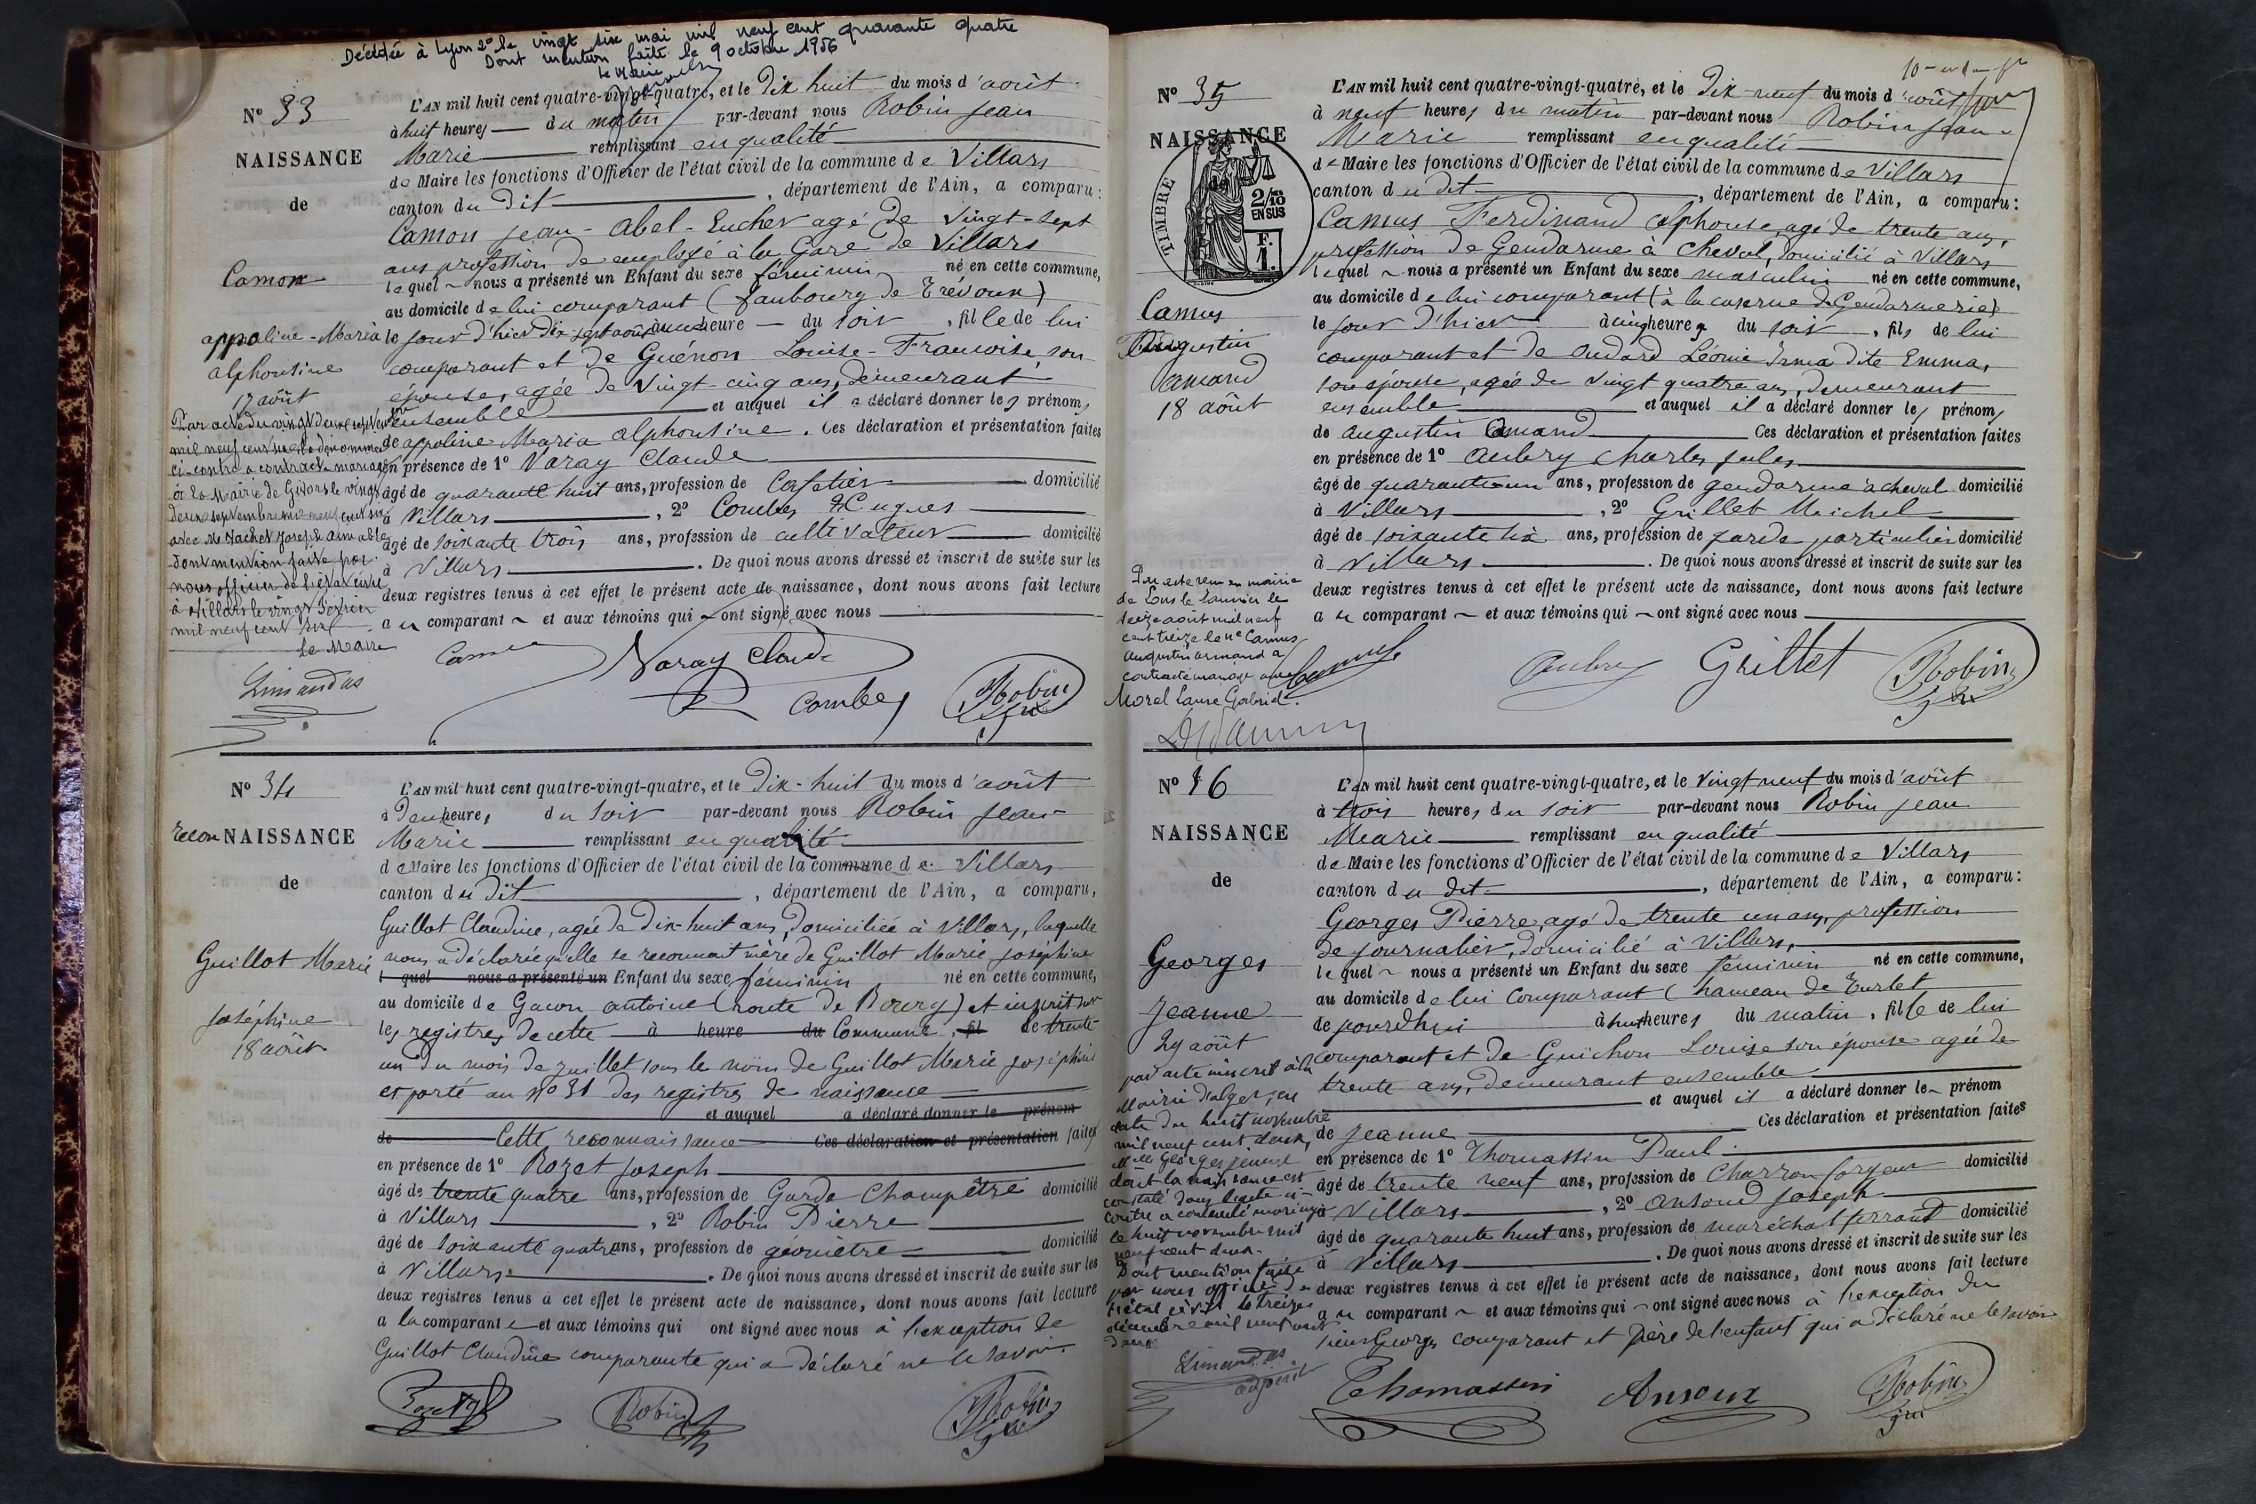 Décédée à Lyon 2e le vingt six mai mil neuf cent quarante quatre
Dont mention faite le 9 octobre 1956
le Maire
N° 33
NAISSANCE
de
Camon
appoline-Maria
alphonsine
17 août
Par acte du vingt deux septembre
mil neuf cent six la dénommée
ci-contre a contracté mariage
à la Mairie de Givors le vingt
deux septembre mil neuf cent six
avec Mr Vachet Joseph Aimable
dont mention faite par
nous officier de l'état civil
à Villars le vingt
mil neuf cent
le Maire
Limandas
L'AN mil huit cent quatre-vingt-quatre, et le Dix huit du mois d'août
à huit heures du matin par-devant nous Robin Jean
Marie remplissant en qualité
de Maire les fonctions d'Officier de l'état civil de la commune de Villars
canton du Dit, département de l'Ain, a comparu:
Camon Jean-Abel-Eucher agé de vingt-sept
ans profession de employé à la Gare de Villars
lequel nous a présenté un Enfant du sexe féminin né en cette commune,
au domicile de lui comparant (faubourg de Trévoux)
le jour d'hier dix sept août à heure du soir, fille de lui
comparant et de Guénon Louise-Francoise, son
épouse, agée de vingt-cinq ans, demeurant
ensemble et auquel il a déclaré donner les prénoms
de appoline Maria alphonsine. Ces déclaration et présentation faites
en présence de 1° Varay Claude
âgé de quarante huit ans, profession de Cafetier domicilié
à Villars, 2° Combes Hugues
âgé de soixante trois ans, profession de cultivateur domicilié
à Villars. De quoi nous avons dressé et inscrit de suite sur les
deux registres tenus à cet effet le présent acte de naissance, dont nous avons fait lecture
au comparant et aux témoins qui ont signé avec nous
Camon Varay Claude
Combes Robin
N° 34
recon NAISSANCE
de
Guillot Marie
Joséphine
18 août
L'AN mil huit cent quatre-vingt-quatre, et le Dix-huit du mois d'août
à Deux heures du soir par-devant nous Robin Jean
Marie remplissant en qualité
de Maire les fonctions d'Officier de l'état civil de la commune de Villars
canton du Dit, département de l'Ain, a comparu,
Guillot Claudine, agée de Dix-huit ans, domiciliée à Villars, laquelle
nous a déclaré qu'elle se reconnait mère de Guillot Marie Joséphine
l quel nous a présenté un Enfant du sexe féminin né en cette commune,
au domicile de Gacon antoine (route de Bourg) et inscrit sur
les registres de cette à heure du Commune, fil de trente
un du mois de juillet sous le nom de Guillot Marie Joséphine
et porté au N° 31 des registres de naissance
et auquel a déclaré donner le prénom
de Cette reconnaissance Ces déclaration et présentation faites
en présence de 1° Rozet Joseph
âgé de trente quatre ans, profession de Garde Champêtre domicilié
à Villars, 2° Robin Pierre
âgé de soixante quatre ans, profession de géomètre domicilié
à Villars. De quoi nous avons dressé et inscrit de suite sur les
deux registres tenus à cet effet le présent acte de naissance, dont nous avons fait lecture
a la comparante et aux témoins qui ont signé avec nous à l'exception de
Guillot Claudine comparante qui a déclaré ne le savoir.
Rozet Robin Robin
N° 35
NAISSANCE
de
TIMBRE
2/10
EN SUS
F.
1.
Camus
Augustin
amand
18 août
Par acte reçu en mairie
de Lons le Saunier le
seize août mil neuf
cent treize le né Camus
Augustin Armand a
contracté mariage avec
Morel Laure Gabriel.
L'AN mil huit cent quatre-vingt-quatre, et le Dix-neuf du mois d'août
à neuf heures du matin par-devant nous Robin Jean
Marie remplissant en qualité
de Maire les fonctions d'Officier de l'état civil de la commune de Villars
canton du dit, département de l'Ain, a comparu:
Camus Ferdinand alphonse, agé de trente ans,
profession de Gendarme à cheval, domicilié à Villars
lequel nous a présenté un Enfant du sexe masculin né en cette commune,
au domicile de lui comparant (à la caserne de Gendarmerie)
le jour d'hier à cinq heures du soir, fils de lui
comparant et de Oudard Léonie Irma dite Emma,
son épouse, agée de vingt quatre ans, demeurant
ensemble et auquel il a déclaré donner les prénoms
de augustin amand Ces déclaration et présentation faites
en présence de 1° Aubry Charles Jules
âgé de quarante-un ans, profession de gendarme à cheval domicilié
à Villars, 2° Grillet Michel
âgé de soixante six ans, profession de garde particulier domicilié
à Villars. De quoi nous avons dressé et inscrit de suite sur les
deux registres tenus à cet effet le présent acte de naissance, dont nous avons fait lecture
au comparant et aux témoins qui ont signé avec nous
Camus Aubry Grillet Robin
N° 36
NAISSANCE
de
Georges
Jeanne
29 août
par acte inscrit à la
Mairie d'alger, en
date du huit novembre
mil neuf cent deux,
Melle Georges Jeanne
dont la naissance est
constaté dans l'acte ci-
contre a contracté mariage
le huit novembre mil
neuf cent deux.
Dont mention faite
par nous officier de
l'état civil le treize
décembre mil neuf cent
deux
Limandas
adjoint
L'AN mil huit cent quatre-vingt-quatre, et le vingt neuf du mois d'août
à trois heures du soir par-devant nous Robin Jean
Marie remplissant en qualité
de Maire les fonctions d'Officier de l'état civil de la commune de Villars
canton du dit, département de l'Ain, a comparu:
Georges Pierre, agé de trente un ans, profession
de journalier, domicilié à Villars,
lequel nous a présenté un Enfant du sexe féminin né en cette commune,
au domicile de lui comparant (hameau de Turlet
de jourd'hui à huit heures du matin, fille de lui
comparant et de Guichon Louise son épouse agée de
trente ans, demeurant ensemble
et auquel il a déclaré donner le prénom
de Jeanne Ces déclaration et présentation faites
en présence de 1° Thomassin Paul
âgé de trente neuf ans, profession de Charron forgeur domicilié
à Villars, 2° Ansoud Joseph
âgé de quarante huit ans, profession de maréchal ferrant domicilié
à Villars. De quoi nous avons dressé et inscrit de suite sur les
deux registres tenus à cet effet le présent acte de naissance, dont nous avons fait lecture
au comparant et aux témoins qui ont signé avec nous à l'exception du
sieur Georges comparant et père de l'enfant qui a déclaré ne le savoir
Thomassin Ansoux Robin